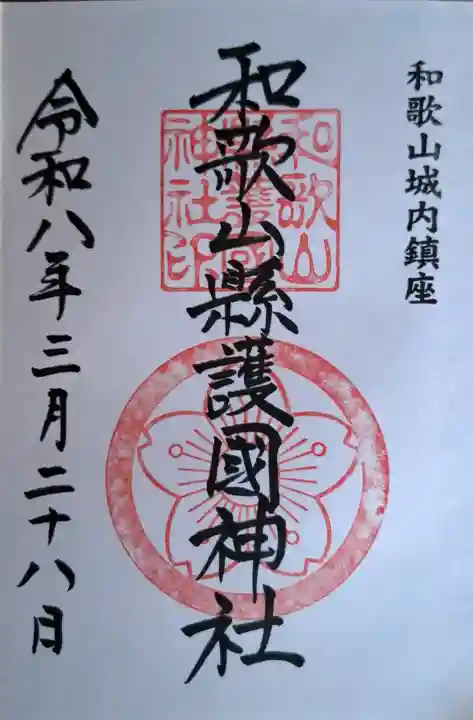 和歌山城内鎮座
和歌山縣護國神社
和歌山縣護國神社印
令和八年三月二十八日